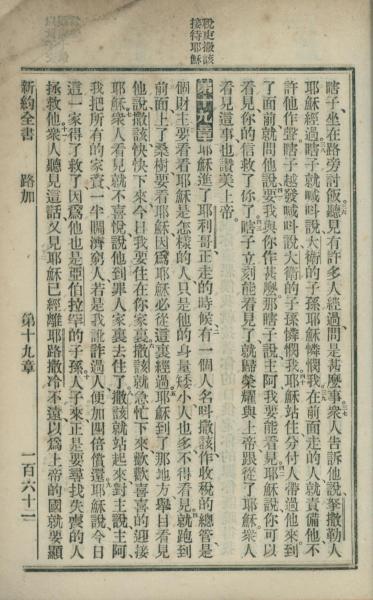 稅吏撒該
接待耶穌
瞎子、坐在路旁討飯、聽見有許多人經過、問是甚麼事、衆人告訴他說、拏撒勒人
耶穌經過、瞎子就喊叫說、大衛的子孫耶穌憐憫我、在前面走的人、就責備他、不
許他作聲、瞎子越發喊叫說、大衛的子孫憐憫我、耶穌站住、分付人帶過他來、到
了面前、就問他說、要我與你作甚麼、那瞎子說、主阿、我要能看見、耶穌說、你可以
看見、你的信救了你了、瞎子立刻能看見了、就歸榮耀與上帝、跟從了耶穌、衆人
看見這事、也讚美上帝。
第十九章 耶穌進了耶利哥、正走的時候、有一個人名叫撒該、作收稅的總管、是
個財主、要看看耶穌是怎樣的人、只是他的身量矮小、人也多、不得看見、就跑到
前面、上了桑樹、要看耶穌、因爲耶穌必從這裏經過、耶穌到了那地方、舉目看見
他、說、撒該、快快下來、今日我要住在你家裏、撒該就急忙下來、歡歡喜喜的迎接
耶穌、衆人看見、就不喜悅、說、他到罪人家裏去住了、撒該就站起來、對主說、主阿、
我把所有的家貲、一半賙濟窮人、若是我訛詐過人、便加四倍償還、耶穌說、今日
這一家得了救了、因爲他也是亞伯拉罕的子孫、人子來、正是要尋找失喪的人、
拯救他、衆人聽見這話、又見耶穌已經離耶路撒冷不遠、以爲上帝的國就要顯
新約全書 路加 第十九章 一百六十二